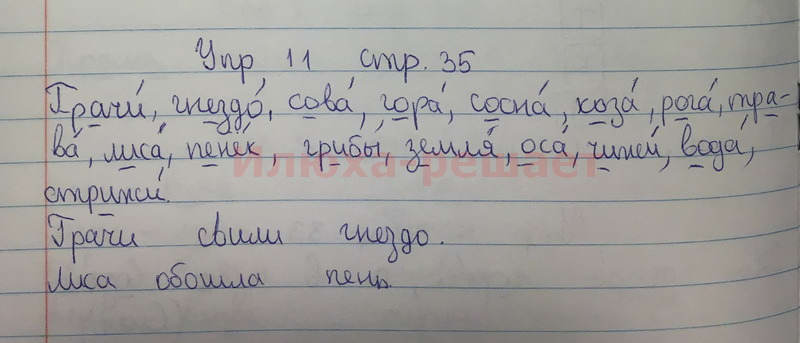 Упр 11 стр. 35
Грачи́, гнездо́, сова́, гора́, сосна́, коза́, рога́, тра-
ва́, лиса́, пенёк, грибы́, земля́, оса́, чижи́, вода́,
стрижи́.
Грачи свили гнездо.
Лиса обошла пень.
илюха-решает